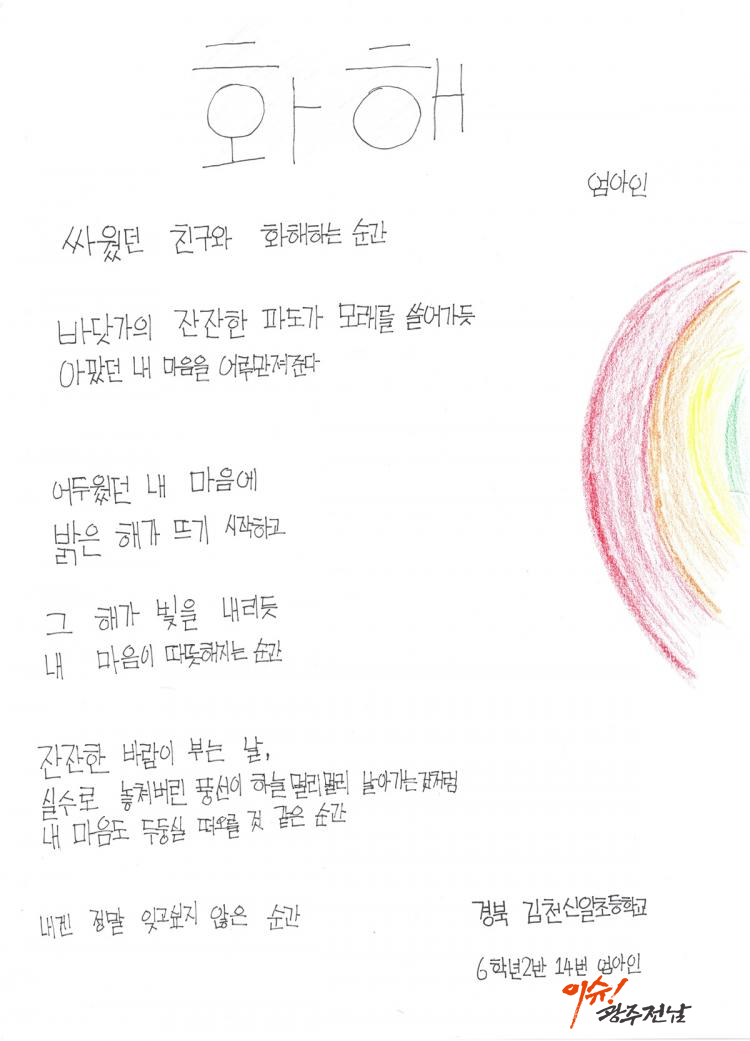 화해
엄아인
싸웠던 친구와 화해하는 순간
바닷가의 잔잔한 파도가 모래를 쓸어가듯
아팠던 내 마음을 어루만져준다
어두웠던 내 마음에
밝은 해가 뜨기 시작하고
그 해가 빛을 내리듯
내 마음이 따뜻해지는 순간
잔잔한 바람이 부는 날,
실수로 놓쳐버린 풍선이 하늘 멀리멀리 날아가는것처럼
내 마음도 두둥실 떠오를 것 같은 순간
내겐 정말 잊고싶지 않은 순간
경북 김천신일초등학교
6학년2반 14번 엄아인
이슈!
광주전남